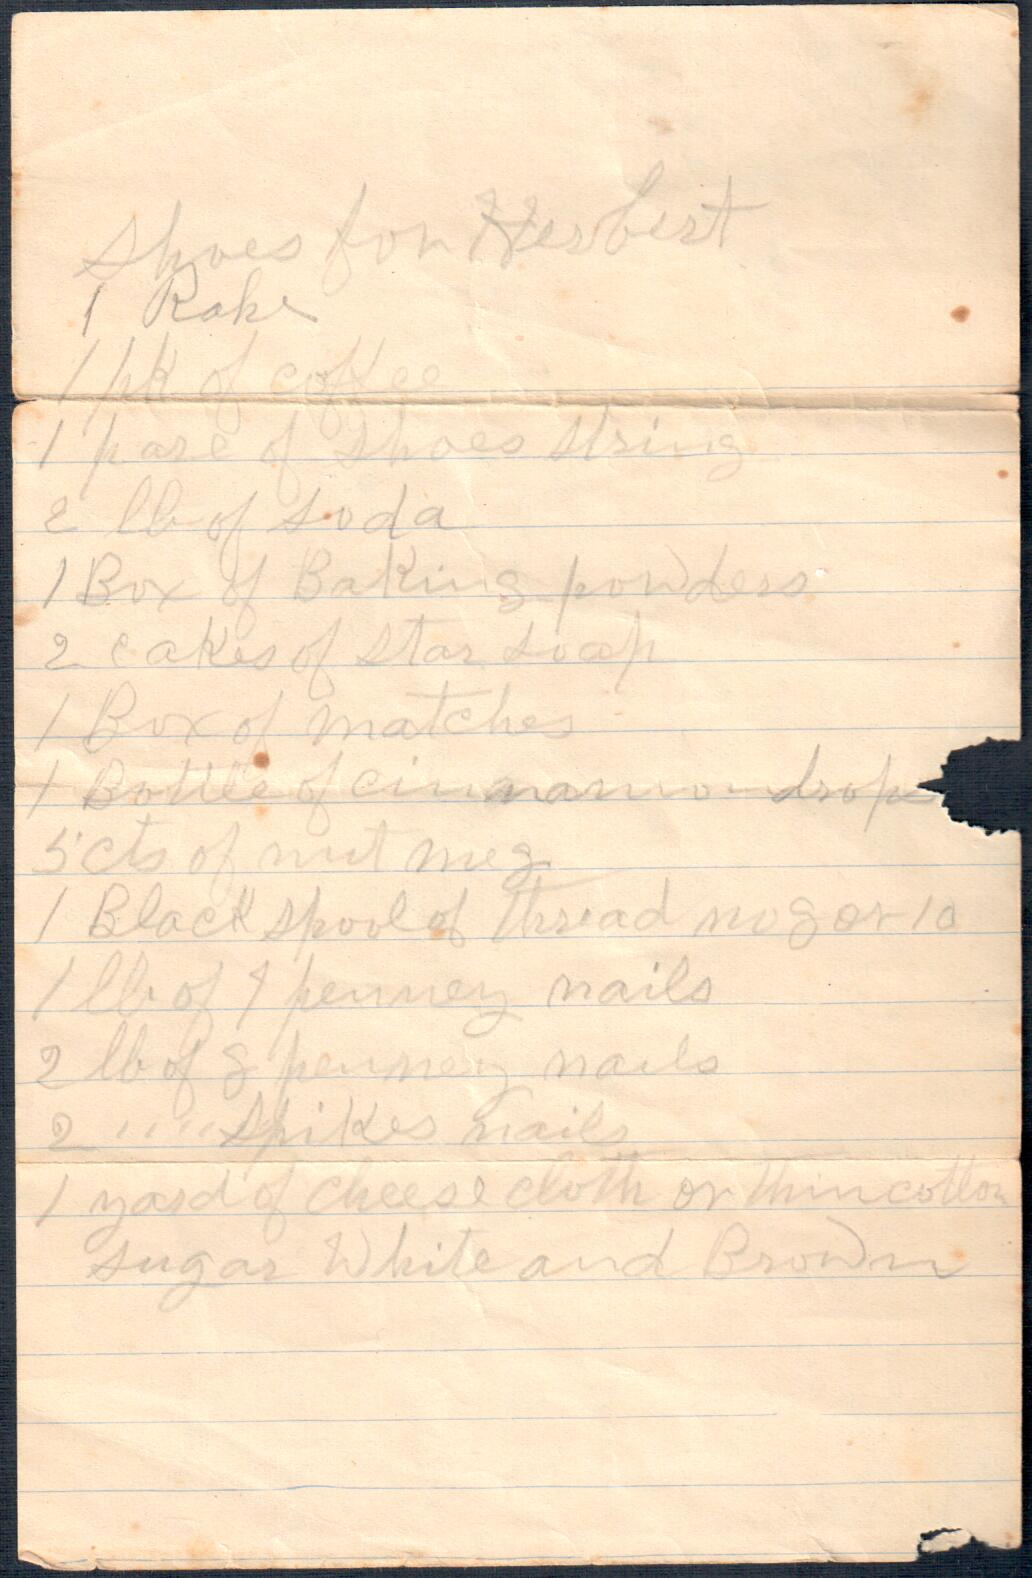 Shoes for Herbert
1 Rake
1 pk of coffee
1 pare of shoes string
2 lb of soda
1 Box of Baking powders
2 cakes of star soap
1 Box of matches
1 Bottle of cinnamon drops
5 cts of nut meg
1 Black spool of thread no 8 or 10
1 lb of penney nails
2 lb of 8 penney nails
2 " " " spikes nails
1 yard of cheese cloth or thin cotton
sugar White and Brown